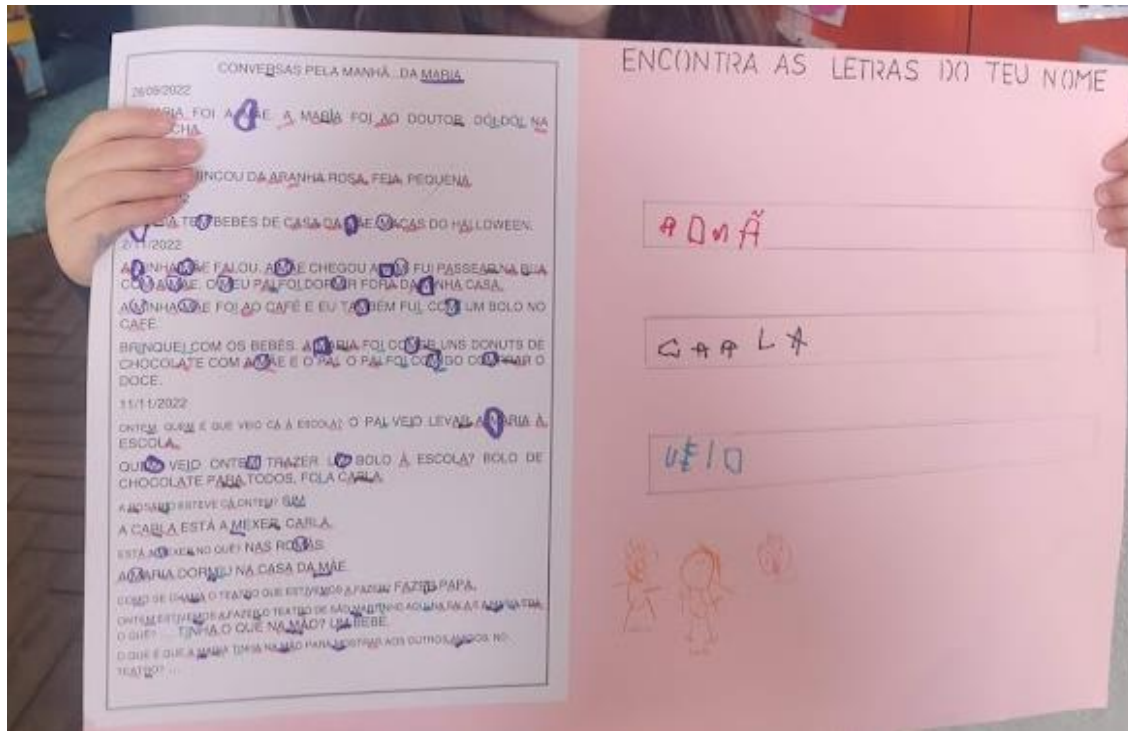 CONVERSAS PELA MANHÃ...DA MARIA
26/09/2022
FOI A MÃE. A MARIA FOI AO DOUTOR. DÓI-DOI, NA
CHA.
BRINCOU DA ARANHA ROSA, FEIA, PEQUENA.
BEBÉS DE CASA DA MÃE. MAÇAS DO HALLOWEEN.
2/11/2022
A MINHA MÃE FALOU. A MÃE CHEGOU FUI PASSEAR NA RUA
COM A MÃE. O MEU PAI FOI DORMIR FORA DA MINHA CASA.
A MINHA MÃE FOI AO CAFÉ E EU TAMBÉM FUI, COMI UM BOLO NO
CAFÉ.
BRINQUEI COM OS BEBÉS. A MARIA FOI COMER UNS DONUTS DE
CHOCOLATE COM A MÃE E O PAI. O PAI FOI COMIGO COMPRAR O
DOCE.
11/11/2022
ONTEM, QUEM É QUE VEIO CÁ À ESCOLA? O PAI, VEIO LEVAR A MARIA À
ESCOLA.
QUEM VEIO ONTEM TRAZER UM BOLO À ESCOLA? BOLO DE
CHOCOLATE PARA TODOS, FOI A CARLA.
A ROSÁRIO ESTEVE CÁ ONTEM? SIM
A CARLA ESTÁ A MEXER, CARLA.
ESTÁ A MEXER NO QUÊ? NAS ROMÃS.
A MARIA DORMIU NA CASA DA MÃE.
COMO SE CHAMA O TEATRO QUE ESTIVEMOS A FAZER? FAZER PAPA.
ONTEM ESTIVEMOS A FAZER O TEATRO DE SÃO MARTINHO AQUI NA SALA E A MARIA ERA
O QUÊ? ... TINHA O QUÊ NA MÃO? UM BEBÉ.
O QUE É QUE A MARIA TINHA NA MÃO PARA MOSTRAR AOS OUTROS AMIGOS NO
TEATRO? ...
ENCONTRA AS LETRAS DO TEU NOME
ROMÃ
CARLA
VEIO